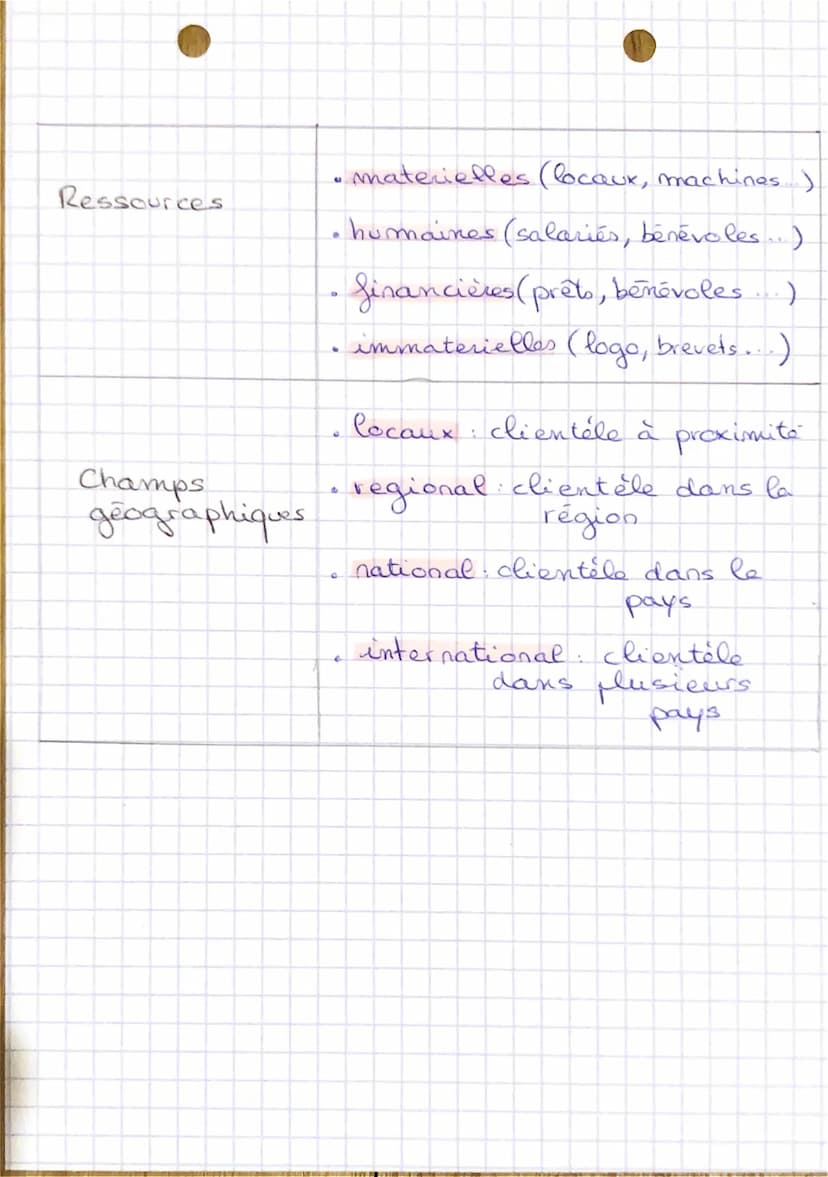 Ressources
• materielles (locaux, machines...)
• humaines (salariés, bénévoles...)
• financières (prêts, bénévoles ...)
• immaterielles (logo, brevets...)
Champs
géographiques
• locaux : clientéle à proximité
• regional : clientèle dans la
région
• national : clientéle dans le
pays
• international : clientèle
dans plusieurs
pays